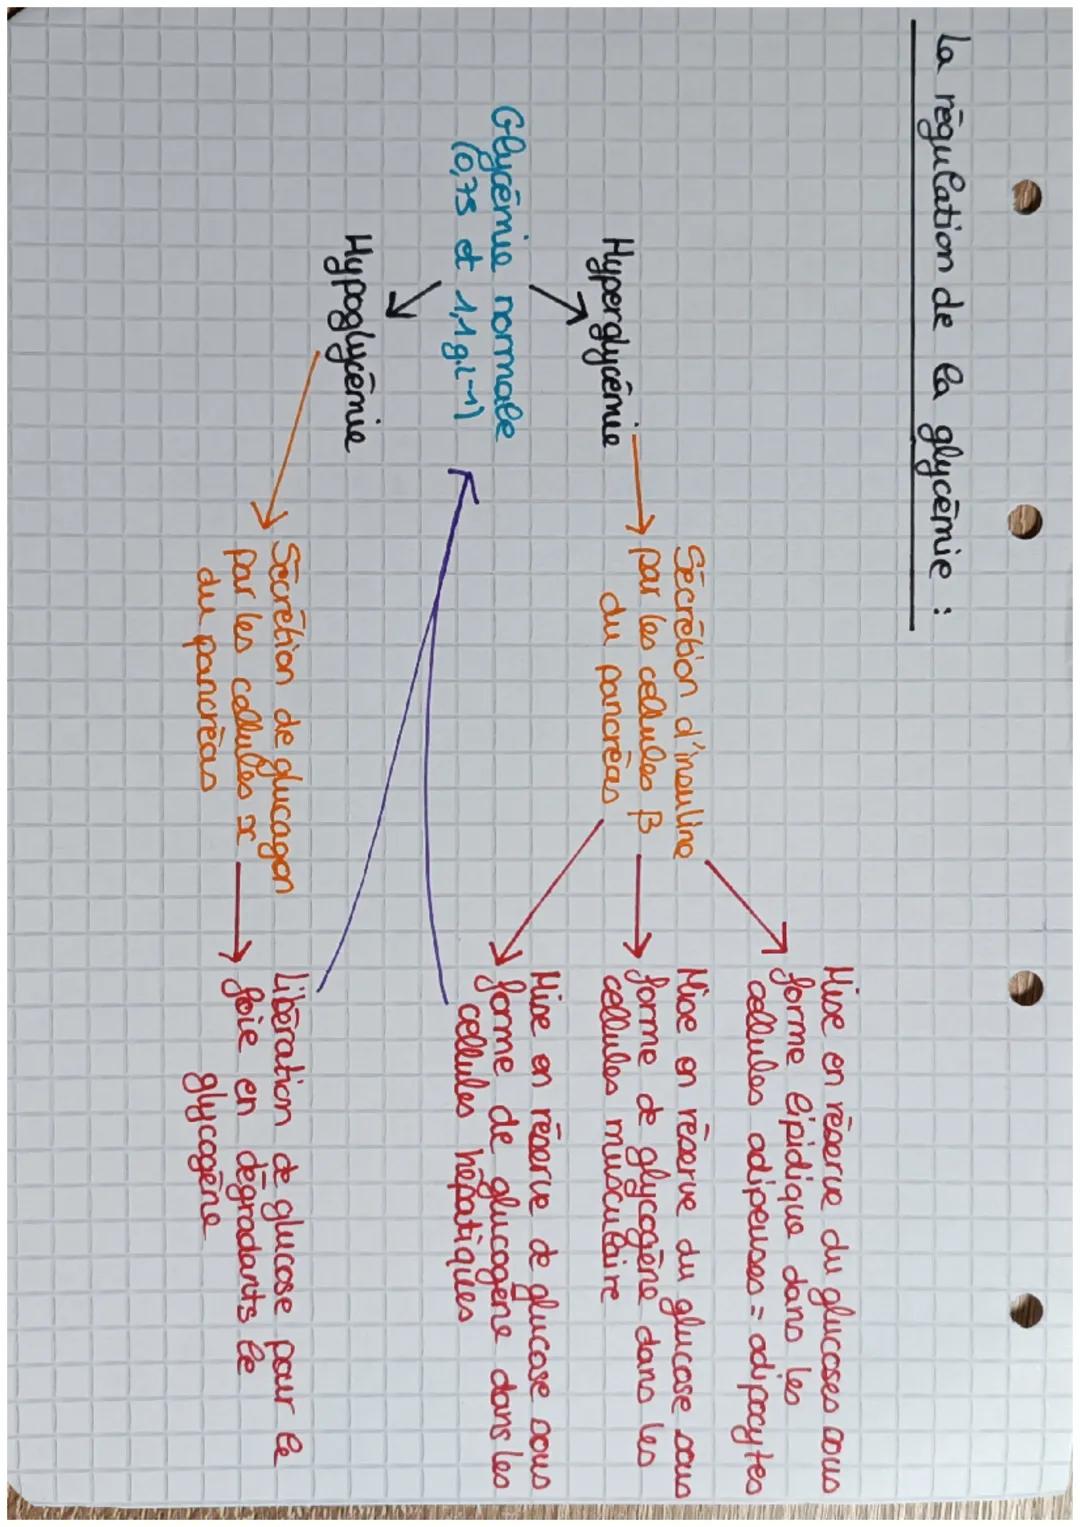 La régulation de la glycémie :
Hyperglycémie
Sécrétion d'insuline
par les cellules β
du pancréas
Mise en réserve du glucoses sous
forme lipidique dans les
cellules adipeuses = adipocytes
Mise en réserve du glucose sous
forme de glycogène dans les
cellules musculaire
Mise en réserve de glucose sous
forme de glucogène dans les
cellules hépatiques
Glycémie normale
(0,75 et 1,1 g.L-1)
Hypoglycémie
Sécrétion de glucagon
par les cellules α
du pancréas
Libération de glucose par le
foie en dégradants le
glycogène